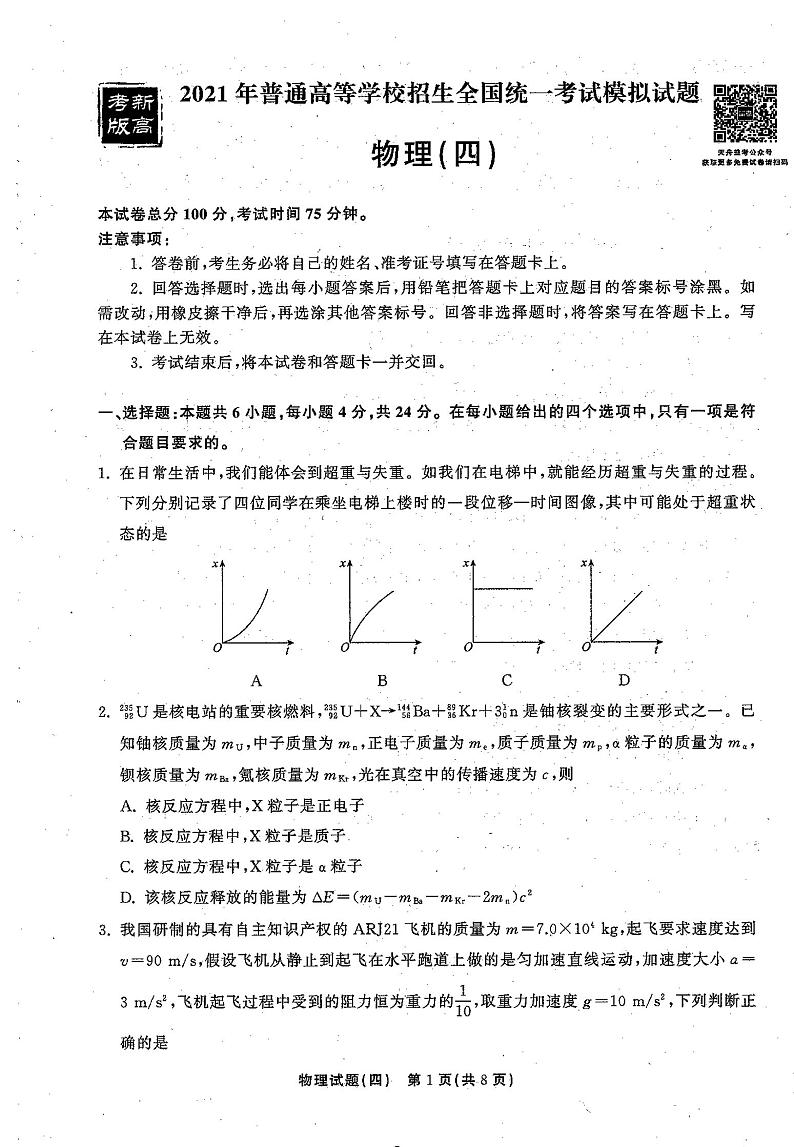 新高
考版
2021 年普通高等学校招生全国统一考试模拟试题
物理(四)
天舟益考公众号
获取更多免费试卷请扫码
本试卷总分 100 分,考试时间 75 分钟。
注意事项:
1. 答卷前,考生务必将自己的姓名、准考证号填写在答题卡上。
2. 回答选择题时,选出每小题答案后,用铅笔把答题卡上对应题目的答案标号涂黑。如
需改动,用橡皮擦干净后,再选涂其他答案标号。回答非选择题时,将答案写在答题卡上。写
在本试卷上无效。
3. 考试结束后,将本试卷和答题卡一并交回。
一、选择题:本题共 6 小题,每小题 4 分,共 24 分。在每小题给出的四个选项中,只有一项是符
合题目要求的。
1. 在日常生活中,我们能体会到超重与失重。如我们在电梯中,就能经历超重与失重的过程。
下列分别记录了四位同学在乘坐电梯上楼时的一段位移—时间图像,其中可能处于超重状
态的是
x x x x
O t O t O t O t
A B C D
2. ²³⁵₉₂U 是核电站的重要核燃料,²³⁵₉₂U+X→¹⁴⁴₅₆Ba+⁸⁹₃₆Kr+3¹₀n 是铀核裂变的主要形式之一。已
知铀核质量为 m_U,中子质量为 m_n,正电子质量为 m_e,质子质量为 m_p,α 粒子的质量为 m_α,
钡核质量为 m_Ba,氪核质量为 m_Kr,光在真空中的传播速度为 c,则
A. 核反应方程中,X 粒子是正电子
B. 核反应方程中,X 粒子是质子
C. 核反应方程中,X 粒子是 α 粒子
D. 该核反应释放的能量为 ΔE=(m_U−m_Ba−m_Kr−2m_n)c²
3. 我国研制的具有自主知识产权的 ARJ21 飞机的质量为 m=7.0×10⁴ kg,起飞要求速度达到
v=90 m/s,假设飞机从静止到起飞在水平跑道上做的是匀加速直线运动,加速度大小 a=
3 m/s²,飞机起飞过程中受到的阻力恒为重力的1/10,取重力加速度 g=10 m/s²,下列判断正
确的是
物理试题(四) 第 1 页(共 8 页)